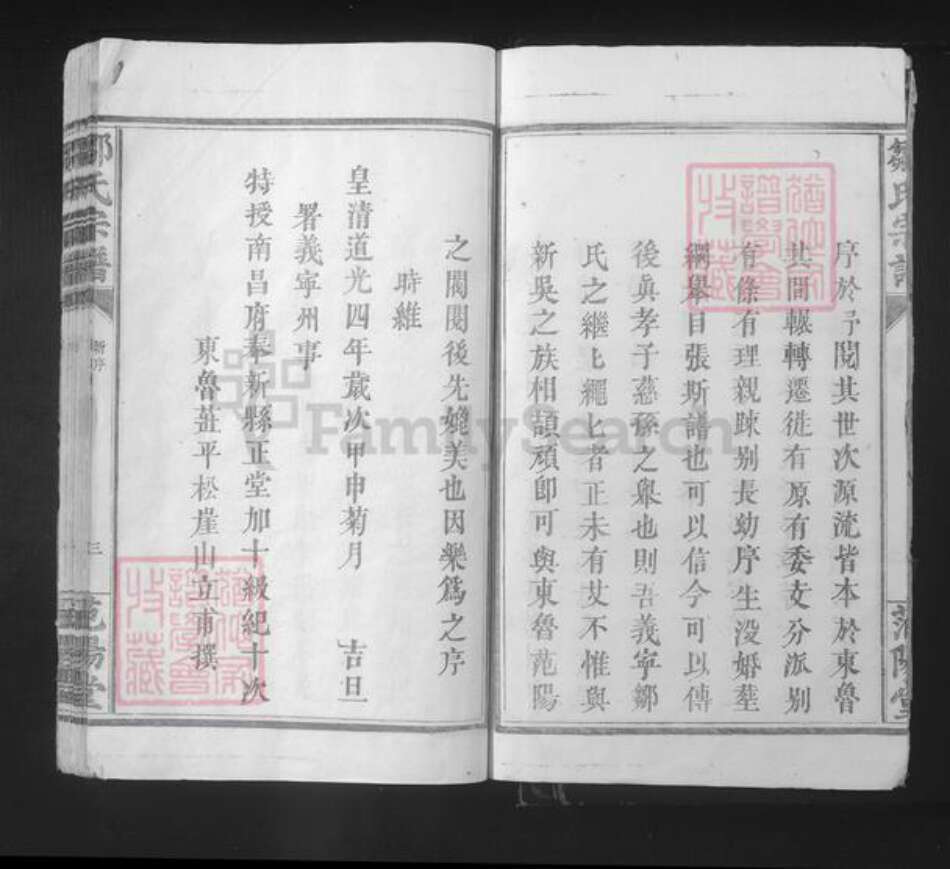 鄒氏宗譜
范陽堂
序於予閱其世次源流皆本於東魯
其間輾轉遷徙有原有委支分派別
有條有理親踈别長幼序生没婚塟
綱舉目張斯譜也可以信今可以傳
後眞孝子慈孫之舉也則吾義寧鄒
氏之繼匕繩匕者正未有艾不惟與
新吳之族相頡頏卽可與東魯范陽
之閥閱後先媲美也因樂爲之序
時維
皇清道光四年歲次甲申菊月 吉旦
署義寧州事
特授南昌府奉新縣正堂加十級紀十次
東魯茌平松崖山立甫撰
鄒氏宗譜
新序
三
范陽堂
FamilySearch